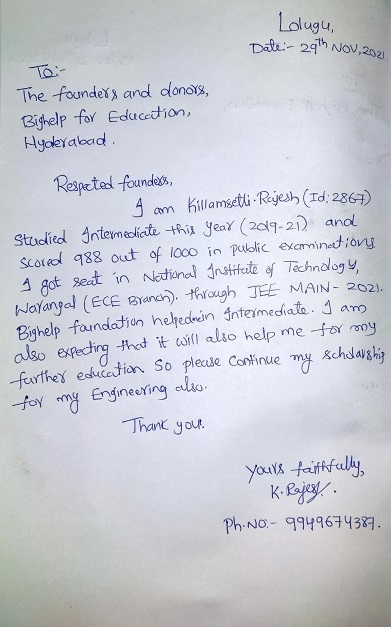 Lolugu,
Date:- 29th NOV, 2021
To:-
The founders and donors,
Bighelp for Education,
Hyderabad.
Respected founders,
I am Killamsetti. Rajesh (Id: 2867)
Studied Intermediate this year (2019-21) and
scored 988 out of 1000 in public examinations
I got seat in National Institute of Technology,
Warangal (ECE Branch). through JEE MAIN - 2021.
Bighelp foundation helped in Intermediate. I am
also expecting that it will also help me for my
further education. So please Continue my scholarship
for my Engineering also.
Thank you.
yours faithfully,
K. Rajesh.
Ph.NO:- 9949674387.